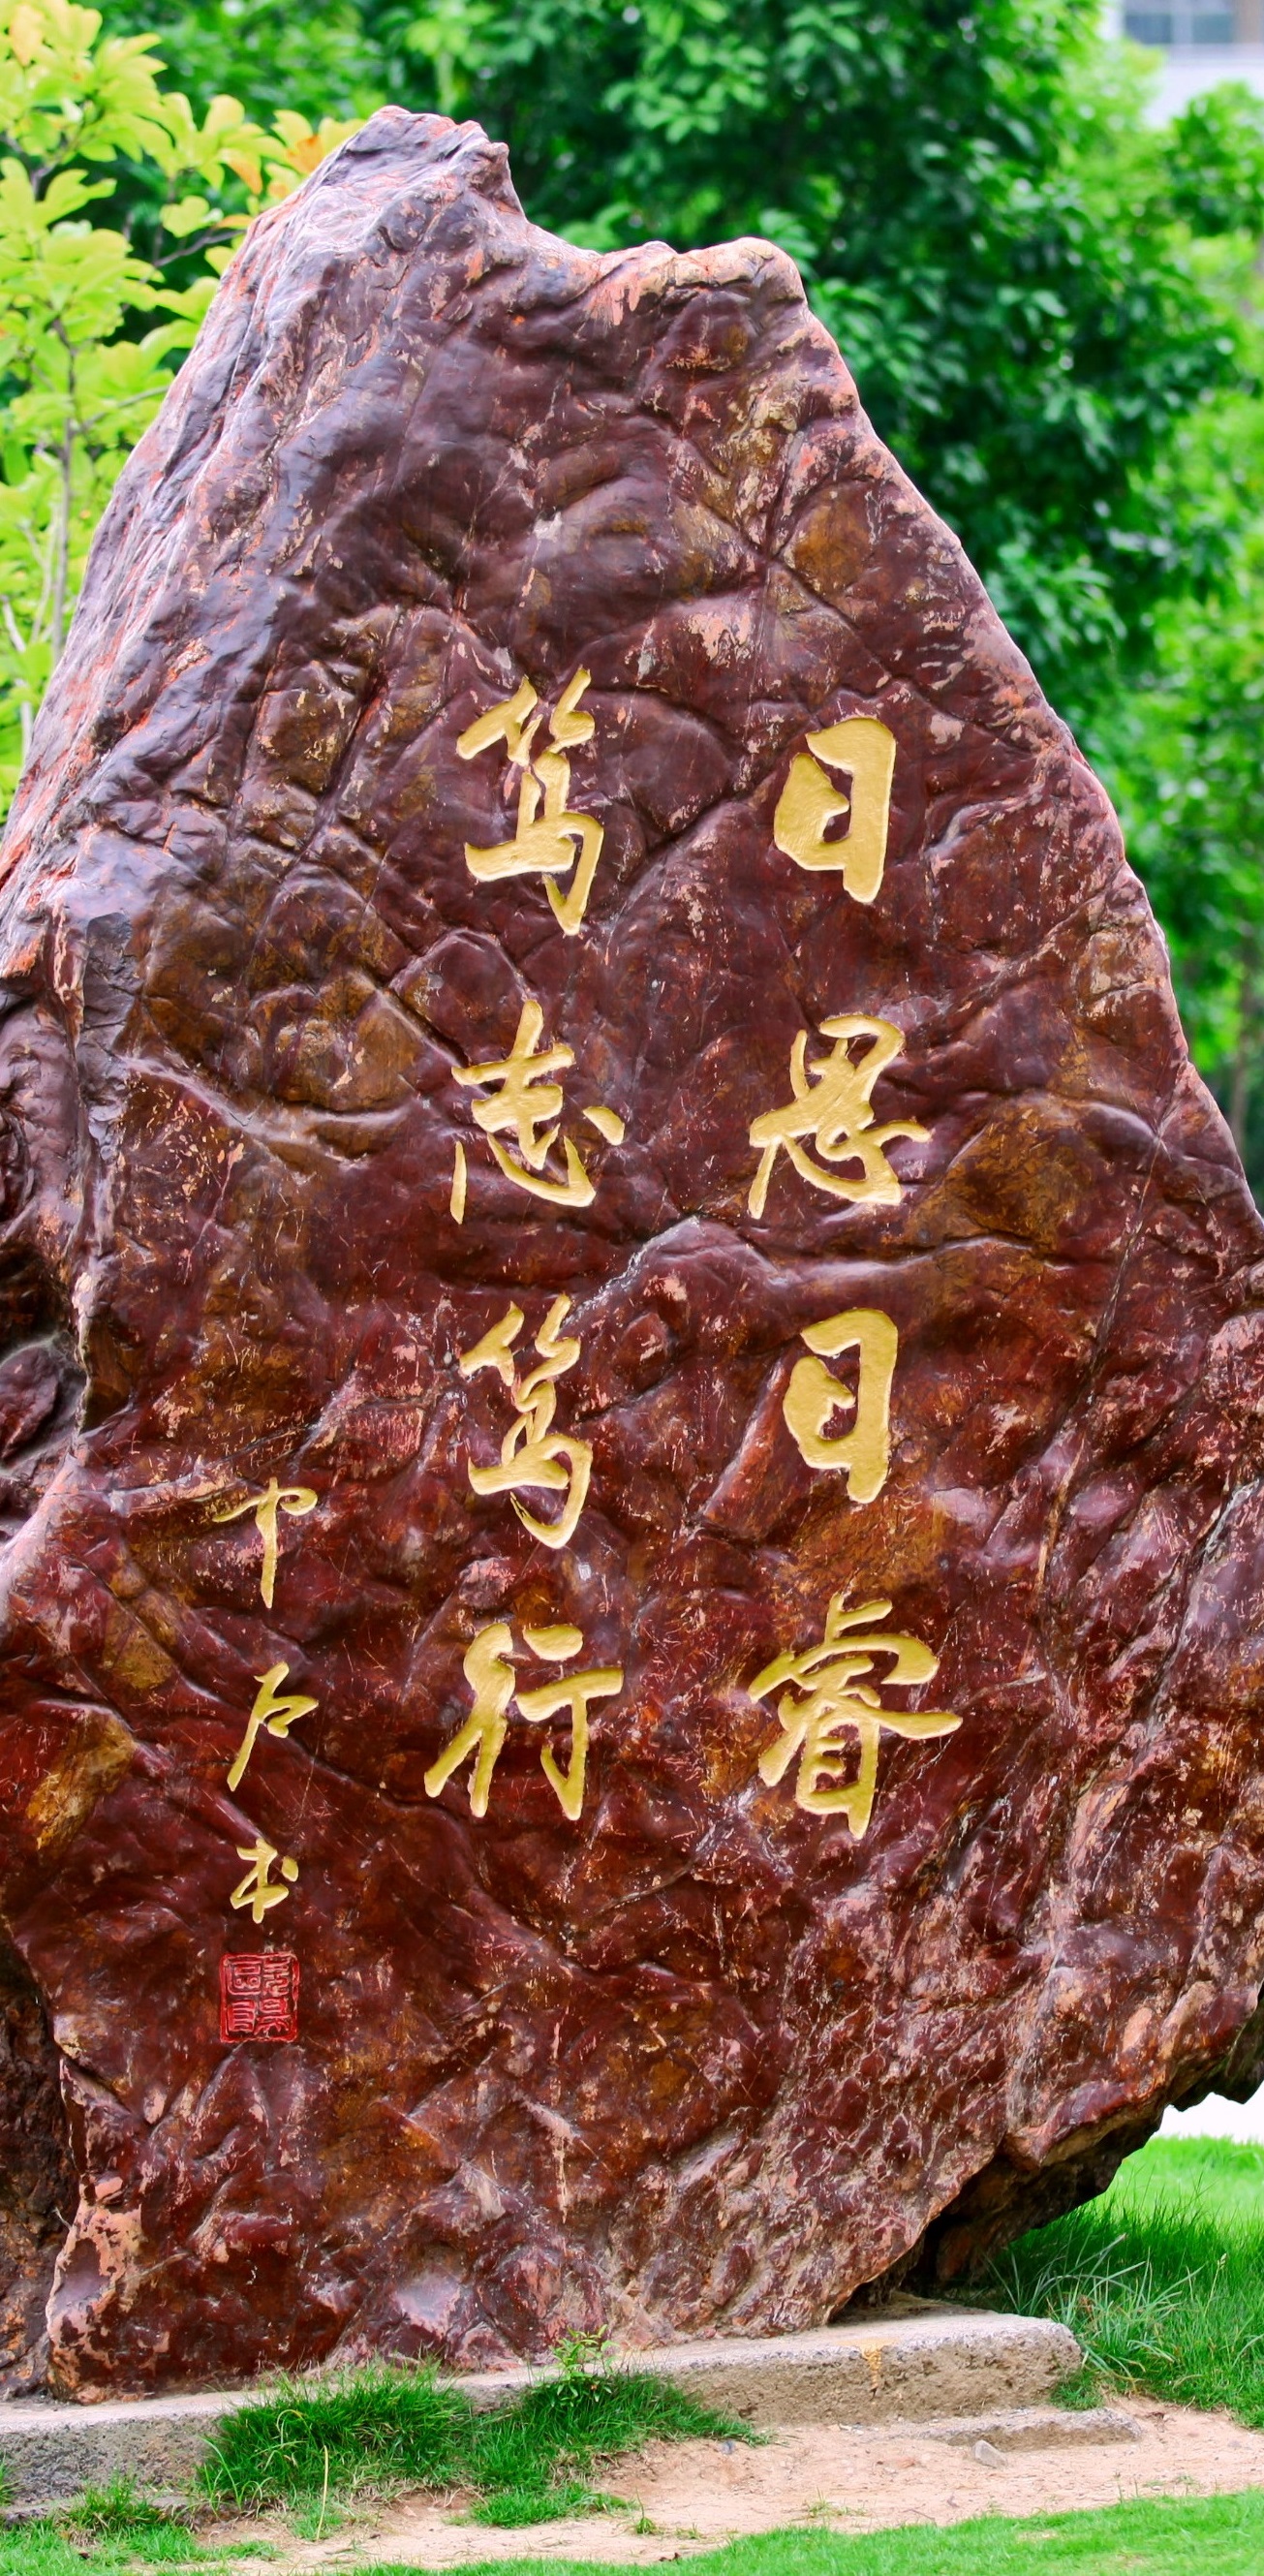 日思日睿
笃志笃行
中石书